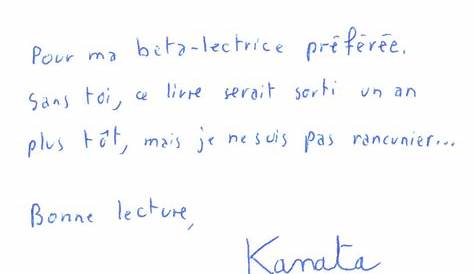 Pour ma bêta-lectrice préférée.
Sans toi, ce livre serait sorti un an
plus tôt, mais je ne suis pas rancunier...
Bonne lecture,
Kanata